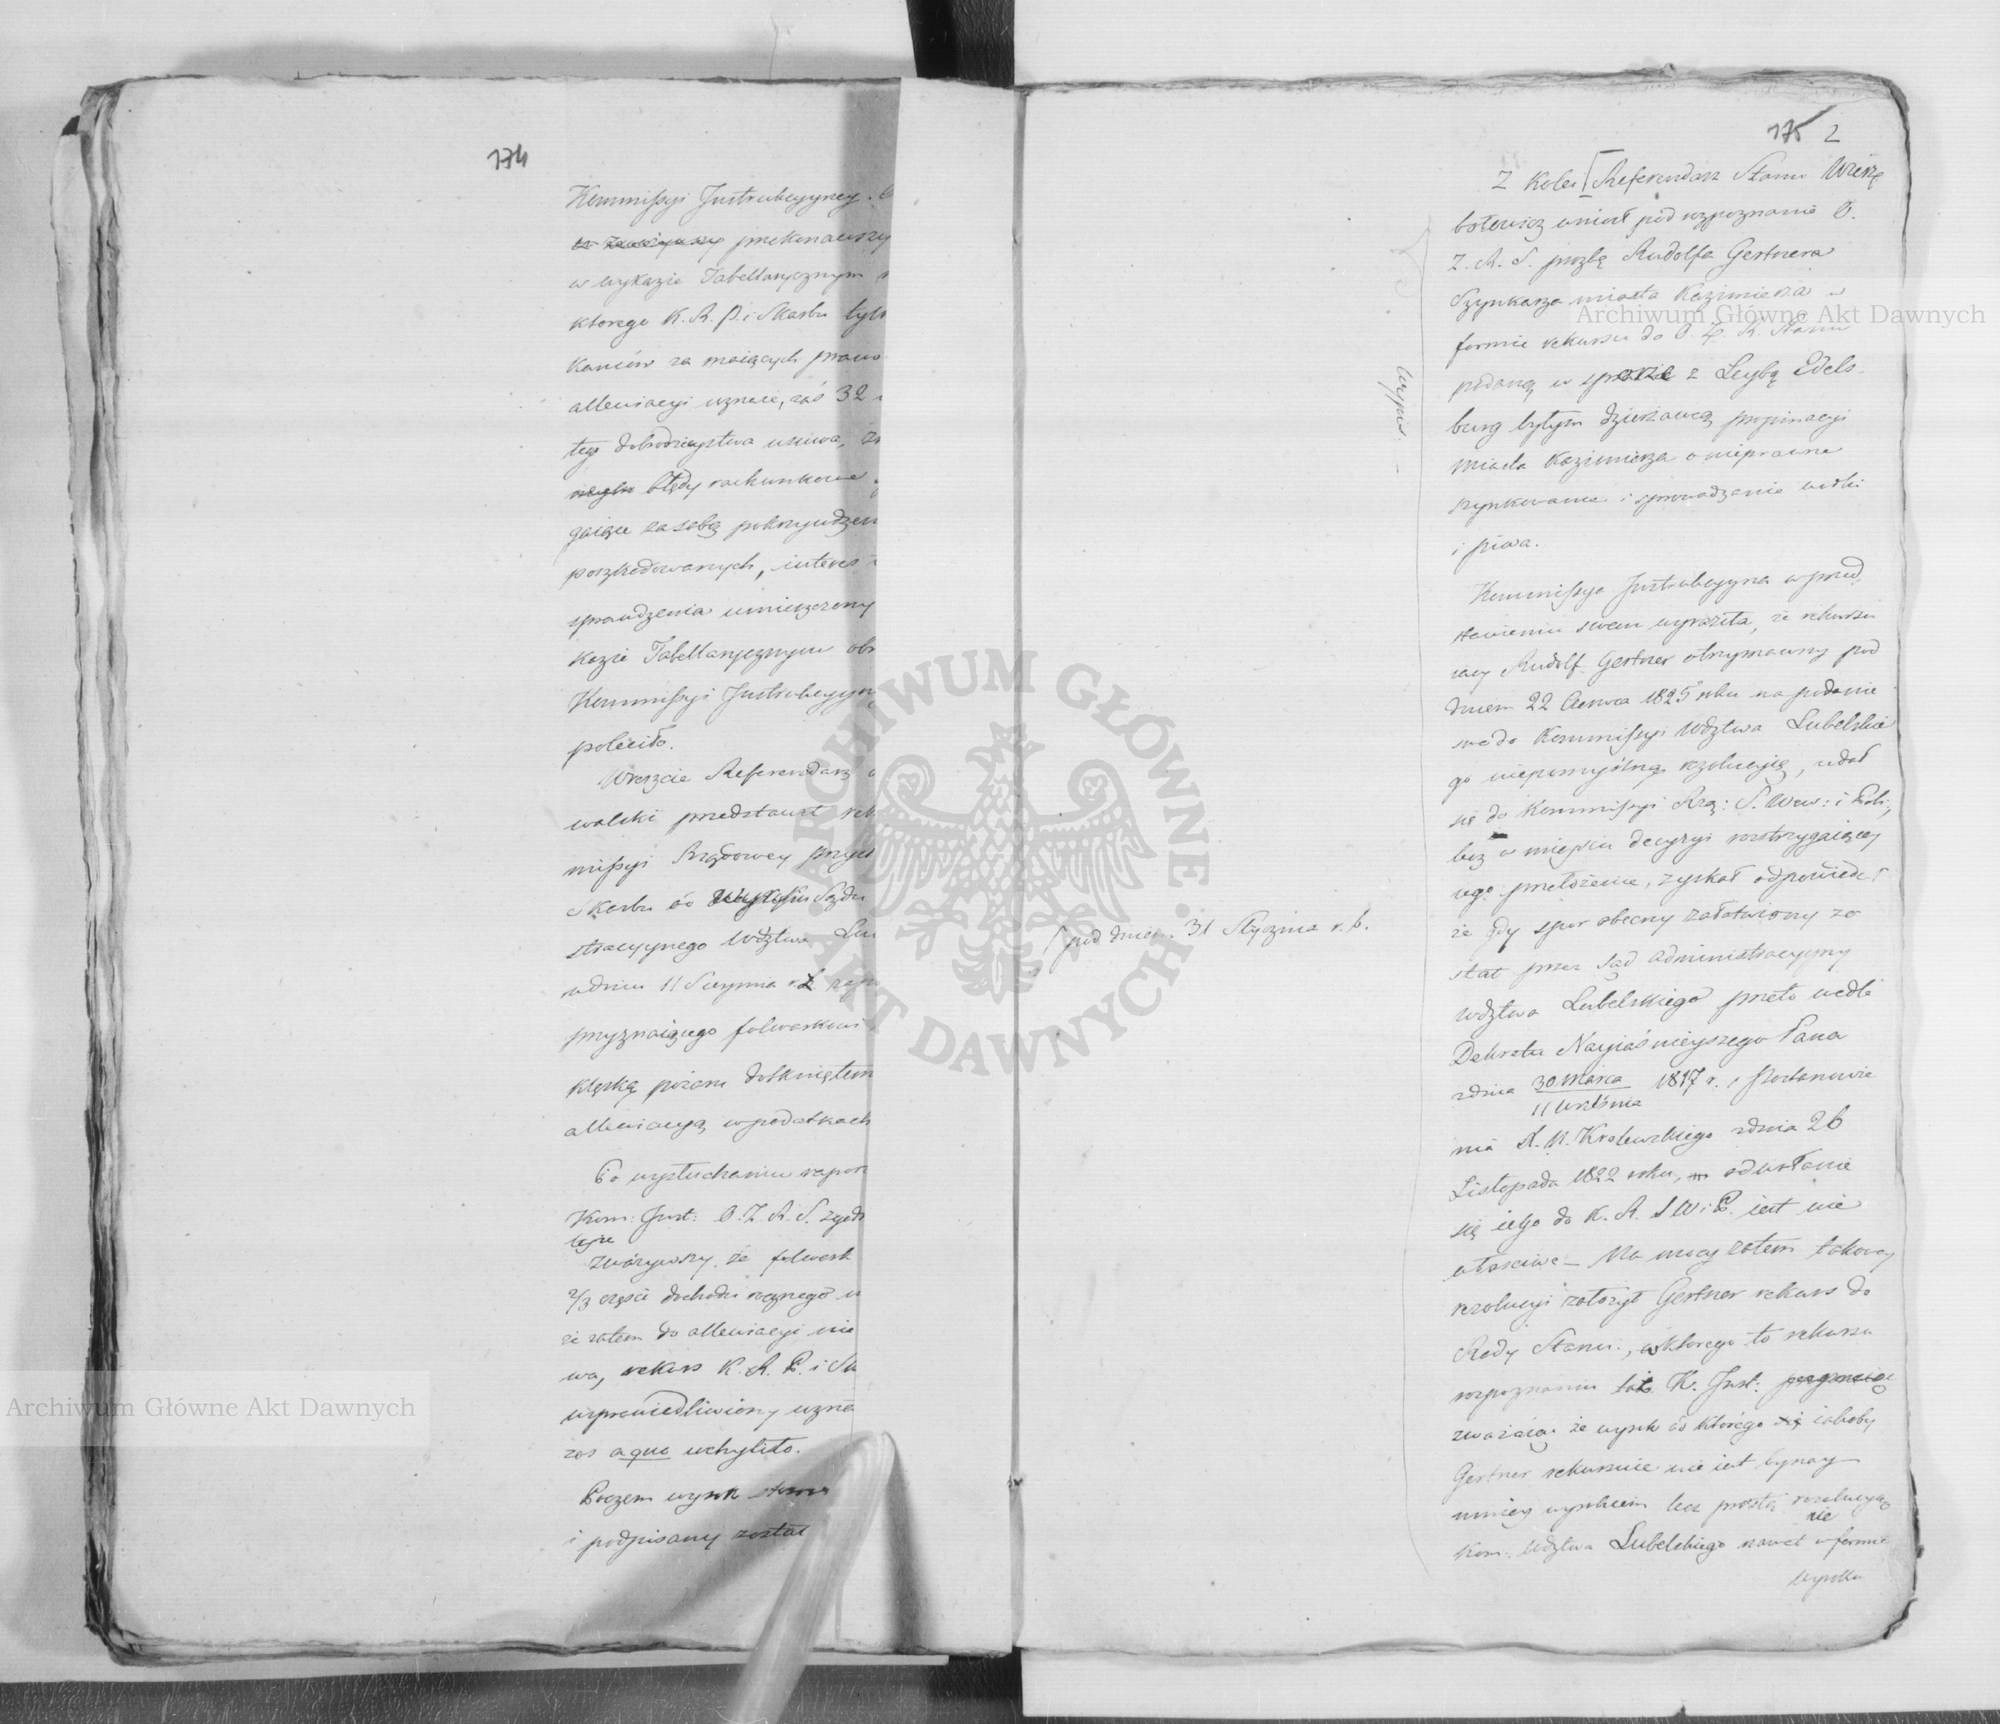 174
Kommissyi Instrukcyyney.
przekonawszy
w wykazie Tabellarycznym
ktorego K. R. P. i Skarbu tyl
kaniów za maiących prawo
allewiacyi uznaie, zaś 32
tego dobrodzieystwa usuwa,
błędy rachunkowe
gaiące za sobą pokrzywdzen
poszkodowanych, interes
sprawdzenia umieszczony
kazie Tabellarycznym obr
Kommissyi Instrukcyyn
poleciło.
Wreszcie Referendarz
walski przedstawił rek
missyi Rządowey Przych
Skarbu od Sądu
stracyynego Wdztwa Lu
w dniu 11 Sierpnia zap
przyznaiącego folwarkowi
klęską pożaru dotkniętem
allewiacyą w podatkach
Po wysłuchaniu rapor
Kom: Inst: O. Z. R. S.
zważywszy, że folwark
2/3 części dochodu rocznego
że zatem do allewiacyi nie
wa, rekurs K. R. P. i Sk
usprawiedliwiony uzna
zas a quo uchyliło.
Poczem wyrok
i podpisany został
175 2
Z kolei Referendarz Stanu Wierz
bołowicz wniósł pod rozpoznanie O.
Z. R. S. prozbę Rudolfa Gertnera
Szynkarza miasta Kazimierza w
formie rekursu do O. Z. R. Stanu
podaną w sprawie z Leybą Edels-
burg byłym dzierżawcą propinacyi
miasta Kazimierza o nieprawne
szynkowanie i sprowadzanie wódki
i piwa.
Kommissya Instrukcyyna w przed
stawieniu swem wyraziła, że rekursu
iący Rudolf Gertner otrzymawszy pod
dniem 22 Czerwca 1825 roku na podanie
swe do Kommissyi Wdztwa Lubelskie
go niepomyślną rezolucyią, udał
się do Kommissyi Rzą: S. Wew: i Poli:,
lecz w mieyscu decyzyi rozstrzygaiącey
iego przełożenie, zyskał odpowiedź
[pod dniem 31 Stycznia r. b.
że gdy spor obecny załatwiony zo
stał przez Sąd Administracyyny
Wdztwa Lubelskiego przeto wedle
Dekretu Nayiaśnieyszego Pana
z dnia 30 Marca 1817 r. i Postanowie
11 Września
nia X. N. Krolewskiego z dnia 26
Listopada 1822 roku, odwołanie
się iego do K. R. S. W. i P. iest nie
właściwe – Na mocy zatem takowey
rezolucyi założył Gertner rekurs do
Rady Stanu, w ktorego to rekursu
rozpoznaniu K. Inst:
zważaiąc że wyrok od ktorego iakoby
Gertner rekursuie nie iest bynay
mniey wyrokiem lecz prostą rezolucyą
nie
Kom: Wdztwa Lubelskiego nawet w formie
wyroku